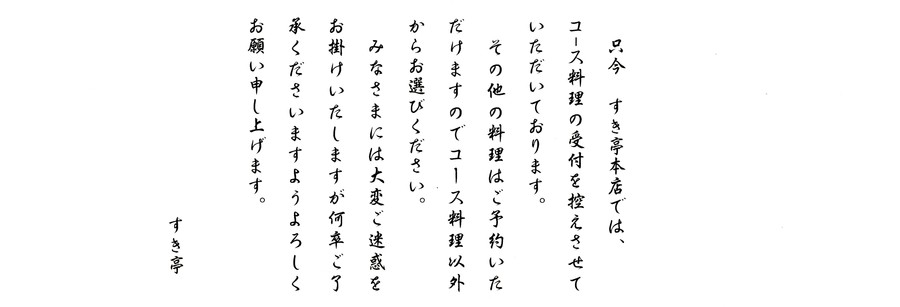 只今　すき亭本店では、
コース料理の受付を控えさせて
いただいております。
その他の料理はご予約いた
だけますのでコース料理以外
からお選びください。
みなさまには大変ご迷惑を
お掛けいたしますが何卒ご了
承くださいますようよろしく
お願い申し上げます。
すき亭